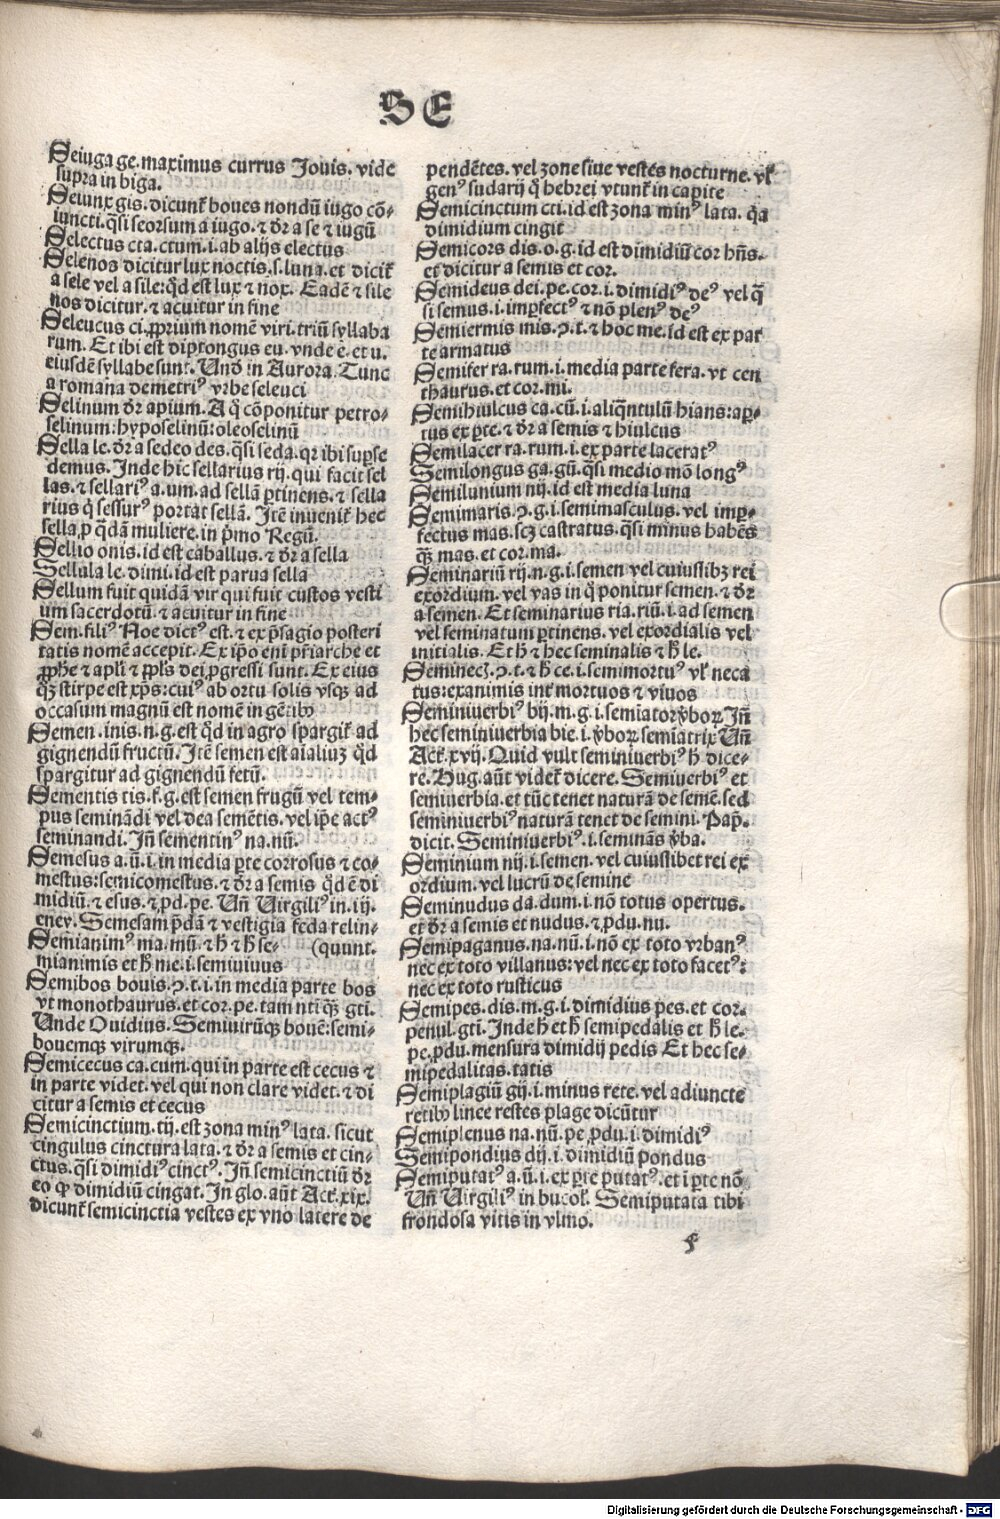 SE
Seiuga ge. maximus currus Jouis. vide
supra in biga.
Seiunx gis. dicunt᷑ boues nondū iugo cō-
iuncti. q̄si seorsum a iugo. ⁊ dr̄ a se ⁊ iugū
Selectus cta. ctum. i. ab alijs electus
Selenos dicitur lux noctis. s. luna. et dicit᷑
a sele vel a sile: qd̄ est lux ⁊ nox. Eadē ⁊ sile
nos dicitur. ⁊ acuitur in fine
Seleucus ci. ꝓprium nomē viri. triū syllaba
rum. Et ibi est diptongus eu. vnde ē. et u.
eiusdē syllabe sunt. Und̄ in Aurora. Tunc
a romana demetriꝰ vrbe seleuci
Selinum dr̄ apium. A q̄ cōponitur petro-
selinum: hyposelinū: oleoselinū
Sella le. dr̄ a sedeo des. q̄si seda. qr ibi suꝑse
demus. Inde hic sellarius rij. qui facit sel
las. ⁊ sellariꝰ a. um. ad sellā ꝑtinens. ⁊ sella
rius q̄ sessurꝰ portat sellā. Itē inuenit᷑ hec
sella ꝓ q̄dā muliere. in pͥmo Regū.
Sellio onis. id est caballus. ⁊ dr̄ a sella
Sellula le. dimi. id est parua sella
Sellum fuit quidā vir qui fuit custos vesti
um sacerdotū. ⁊ acuitur in fine
Sem. filiꝰ Noe dictꝰ est. ⁊ ex p̄sagio posteri
tatis nomē accepit. Ex ip̄o eni pr̄iarche et
ꝓphe ⁊ apl̄i ⁊ ppl̄s dei ꝓgressi sunt. Ex eius
qꝫ stirpe est xp̄s: cuiꝰ ab ortu solis vsqꝫ ad
occasum magnū est nomē in gētibꝰ
Semen. inis. n. g. est qd̄ in agro spargit᷑ ad
gignendū fructū. Itē semen est aīaliuꝫ qd̄
spargitur ad gignendū fetū.
Sementis tis. f. g. est semen frugū vel tem-
pus seminādi vel dea semētis. vel ip̄e actꝰ
seminandi. Jn̄ sementinꝰ na. nū.
Semesus a. ū. i. in media ꝑte corrosus ⁊ co-
mestus: semicomestus. ⁊ dr̄ a semis qd̄ ē di
midiū. ⁊ esus. ⁊ ꝓd. pe. Un̄ Uirgiliꝰ in. iij.
eney. Semesam p̄dā ⁊ vestigia feda relin-
Semianimꝰ ma. mū. ⁊ h̄ ⁊ h̄ se- (quunt.
mianimis et h̄ me. i. semiuiuus
Semibos bouis. ꝯ. t. i. in media parte bos
vt monothaurus. et cor. pe. tam nt̄i qꝫ gt̄i.
Unde Ouidius. Semiuirūqꝫ bouē: semi-
bouemqꝫ virumqꝫ.
Semicecus ca. cum. qui in parte est cecus ⁊
in parte videt. vel qui non clare videt. ⁊ di
citur a semis et cecus
Semicinctium. tij. est zona minꝰ lata. sicut
cingulus cinctura lata. ⁊ dr̄ a semis et cin-
ctus. q̄si dimidiꝰ cinctꝰ. Jn̄ semicinctiū dr̄
eo ꝙ dimidiū cingat. In glo. aūt Act᷑. xix.
dicunt᷑ semicinctia vestes ex vno latere de
pendētes. vel zone siue vestes nocturne. vl̄
genꝰ sudarij q̄ hebrei vtunt᷑ in capite
Semicinctum cti. id est zona minꝰ lata. q̄a
dimidium cingit
Semicors dis. o. g. id est dimidiū cor hn̄s.
et dicitur a semis et cor.
Semideus dei. pe. cor. i. dimidiꝰ deꝰ vel q̄
si semus. i. imꝑfectꝰ ⁊ nō plenꝰ deꝰ
Semiermis mis. ꝯ. t. ⁊ hoc me. id est ex par
te armatus
Semifer ra. rum. i. media parte fera. vt cen
thaurus. et cor. mi.
Semihiulcus ca. cū. i. aliq̄ntulū hians: aꝑ-
tus ex ꝑte. ⁊ dr̄ a semis ⁊ hiulcus
Semilacer ra. rum. i. ex parte laceratꝰ
Semilongus ga. gū. q̄si medio mō longꝰ
Semilunium nij. id est media luna
Semimaris. ꝯ. g. i. semimasculus. vel imꝑ-
fectus mas. scꝫ castratus. q̄si minus habēs
qꝫ mas. et cor. ma.
Seminariū rij. n. g. i. semen vel cuiuslibꝫ rei
exordium. vel vas in q̄ ponitur semen. ⁊ dr̄
a semen. Et seminarius ria. riū. i. ad semen
vel seminatum ꝑtinens. vel exordialis vel
initialis. Et h̄ ⁊ hec seminalis ⁊ h̄ le.
Seminecꝫ. ꝯ. t. ⁊ h̄ ce. i. semimortuꝰ vl̄ neca
tus: exanimis int᷑ mortuos ⁊ viuos
Seminiuerbiꝰ bij. m. g. i. semīator v̄boꝝ Jn̄
hec seminiuerbia bie. i. v̄boꝝ semīatrix Un̄
Act᷑. xvij. Quid vult seminiuerbiꝰ h̄ dice-
re. Hug. aūt videt᷑ dicere. Semiuerbiꝰ et
semiuerbia. et tūc tenet naturā de semē. sed
seminiuerbiꝰ naturā tenet de semini. Pap̄.
dicit. Seminiuerbiꝰ. i. seminās v̄ba.
Seminium nij. i. semen. vel cuiuslibet rei ex
ordium. vel lucrū de semine
Seminudus da. dum. i. nō totus opertus.
et dr̄ a semis et nudus. ⁊ ꝓdu. nu.
Semipaganus. na. nū. i. nō ex toto vrbanꝰ
nec ex toto villanus: vel nec ex toto facetꝰ:
nec ex toto rusticus
Semipes. dis. m. g. i. dimidius pes. et cor.
penul. gt̄i. Inde h̄ et h̄ semipedalis et h̄ le.
pe. ꝓdu. mensura dimidij pedis Et hec se-
mipedalitas. tatis
Semiplagiū gij. i. minus rete. vel adiuncte
retibꝰ linee restes plage dicūtur
Semiplenus na. nū. pe. ꝓdu. i. dimidiꝰ
Semipondius dij. i. dimidiū pondus
Semiputatꝰ a. ū. i. ex ꝑte putatꝰ. et i ꝑte nō
Un̄ Uirgiliꝰ in bucol̄. Semiputata tibi
frondosa vitis in vlmo.
Digitalisierung gefördert durch die Deutsche Forschungsgemeinschaft - DFG